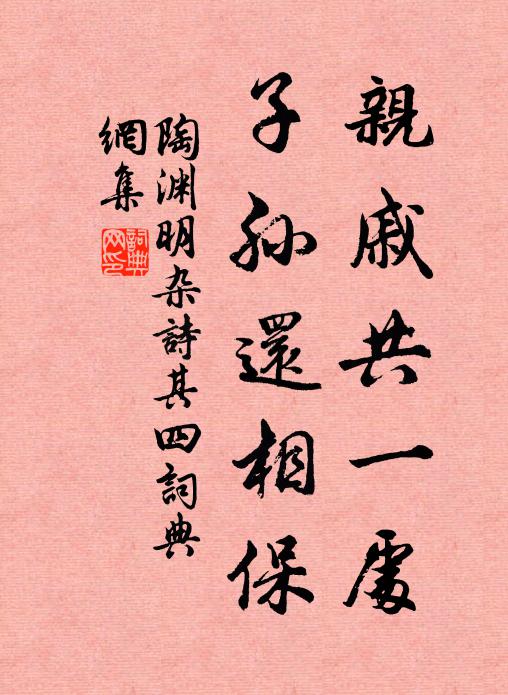 親戚共一處
子孫還相保
陶渊明杂詩其四詞典
網集
詞典
网印